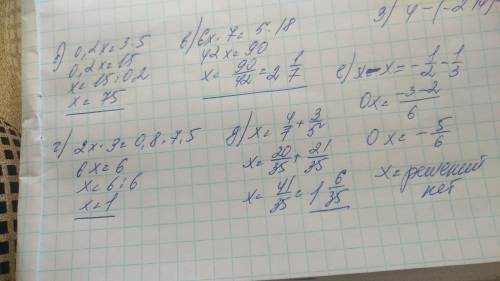 б) 0,2x = 3·5
0,2x = 15
x = 15 : 0,2
x = 75
в) 6x · 7 = 5 · 18
42x = 90
x = 90/42 = 2 1/7
г) 2x · 3 = 0,8 · 7,5
6x = 6
x = 6 : 6
x = 1
д) x = 4/7 + 3/5
x = 20/35 + 21/35
x = 41/35 = 1 6/35
е) x - x = - 1/2 - 1/3
0x = -3-2/6
0x = - 5/6
x = решений
нет